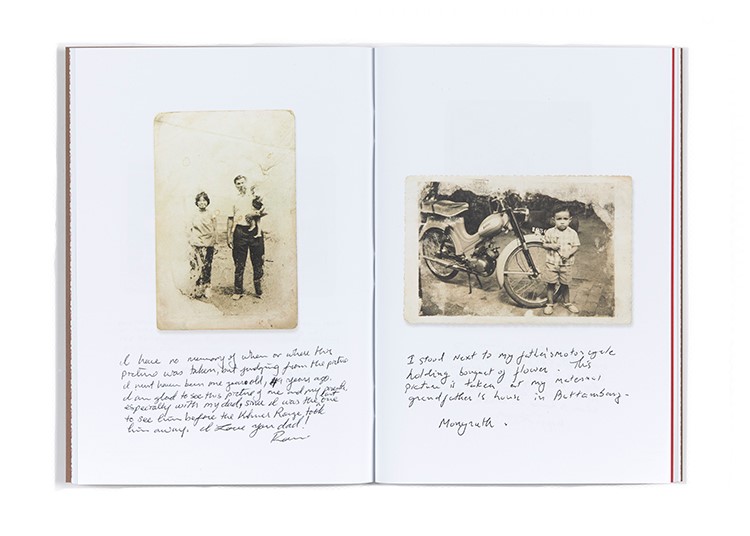 I have no memory of when or where this
picture was taken, but judging from the picture
I must have been one year old, years ago.
I am glad to see this picture of me and my parents,
especially with my dad, since it was the last one
to see him before the Khmer Rouge took
him away. I Love you dad!
I stood next to my father's motorcycle
holding bouquet of flower. This
picture is taken at my maternal
grandfather's house in Battambang.
Monyrath.